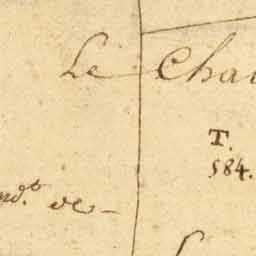 Le Chau
T.
584.
nd.t de